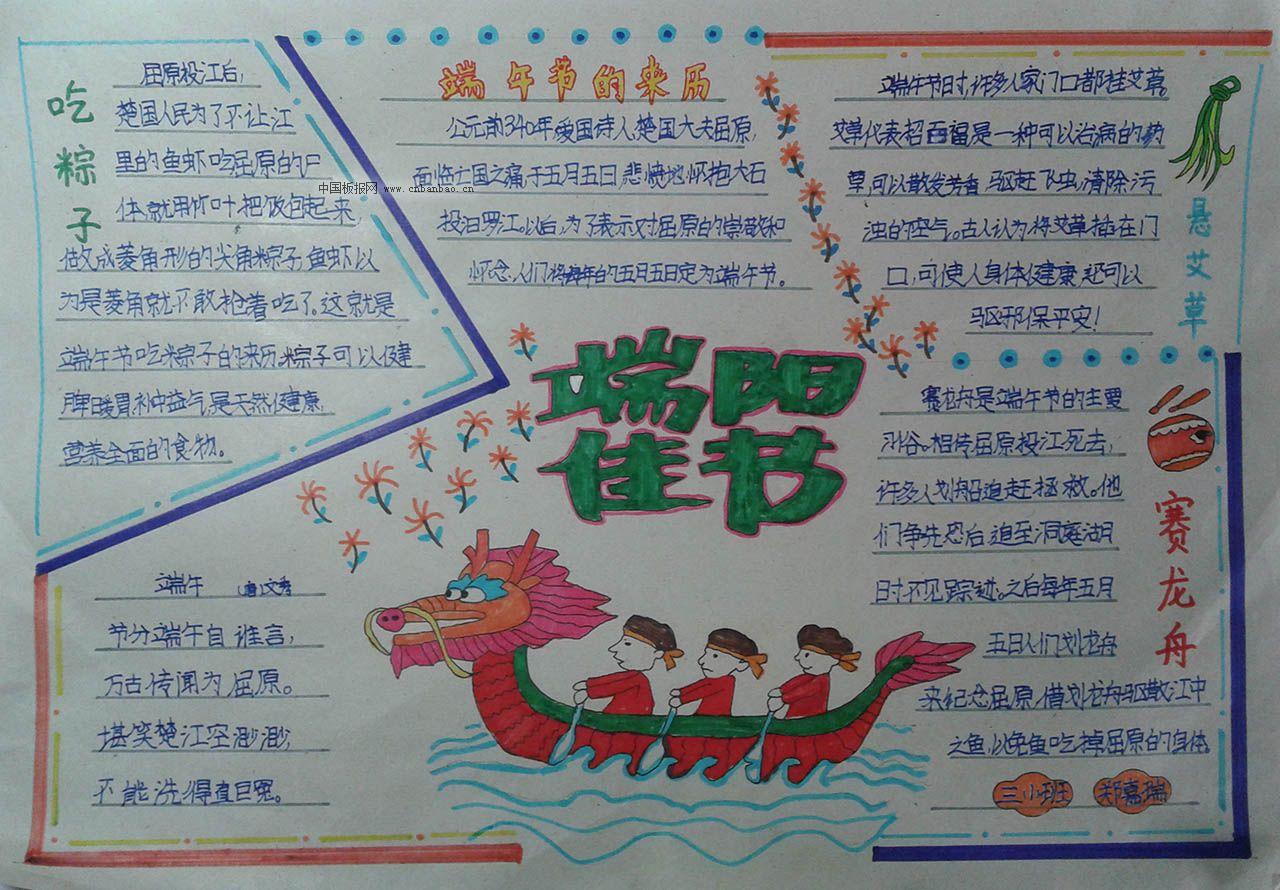 吃粽子
屈原投江后,
楚国人民为了不让江
里的鱼虾吃屈原的尸
体,就用竹叶把饭包起来,
做成菱角形的尖角粽子,鱼虾以
为是菱角就不敢抢着吃了。这就是
端午节吃粽子的来历.粽子可以健
脾暖胃补中益气,是天然健康
营养全面的食物。
中国板报网 www.cnbanbao.cn
端午节的来历
公元前340年,爱国诗人楚国大夫屈原,
面临亡国之痛于五月五日,悲愤地怀抱大石
投汨罗江。以后,为了表示对屈原的崇敬和
怀念,人们将每年的五月五日定为端午节。
端午节时,许多人家门口都挂艾草。
艾草代表招百福是一种可以治病的药
草,可以散发芳香,驱赶飞虫,清除污
浊的空气。古人认为将艾草插在门
口,可使人身体健康,还可以
驱邪保平安!
悬艾草
端阳
佳节
赛龙舟是端午节的主要
习俗。相传屈原投江死去,
许多人划船追赶拯救。他
们争先恐后,追至洞庭湖
时不见踪迹。之后每年五月
五日人们划龙舟
来纪念屈原,借划龙舟驱散江中
之鱼,以免鱼吃掉屈原的身体。
赛龙舟
三小班 郑嘉瑞
端午 (唐)文秀
节分端午自谁言,
万古传闻为屈原。
堪笑楚江空渺渺,
不能洗得直臣冤。